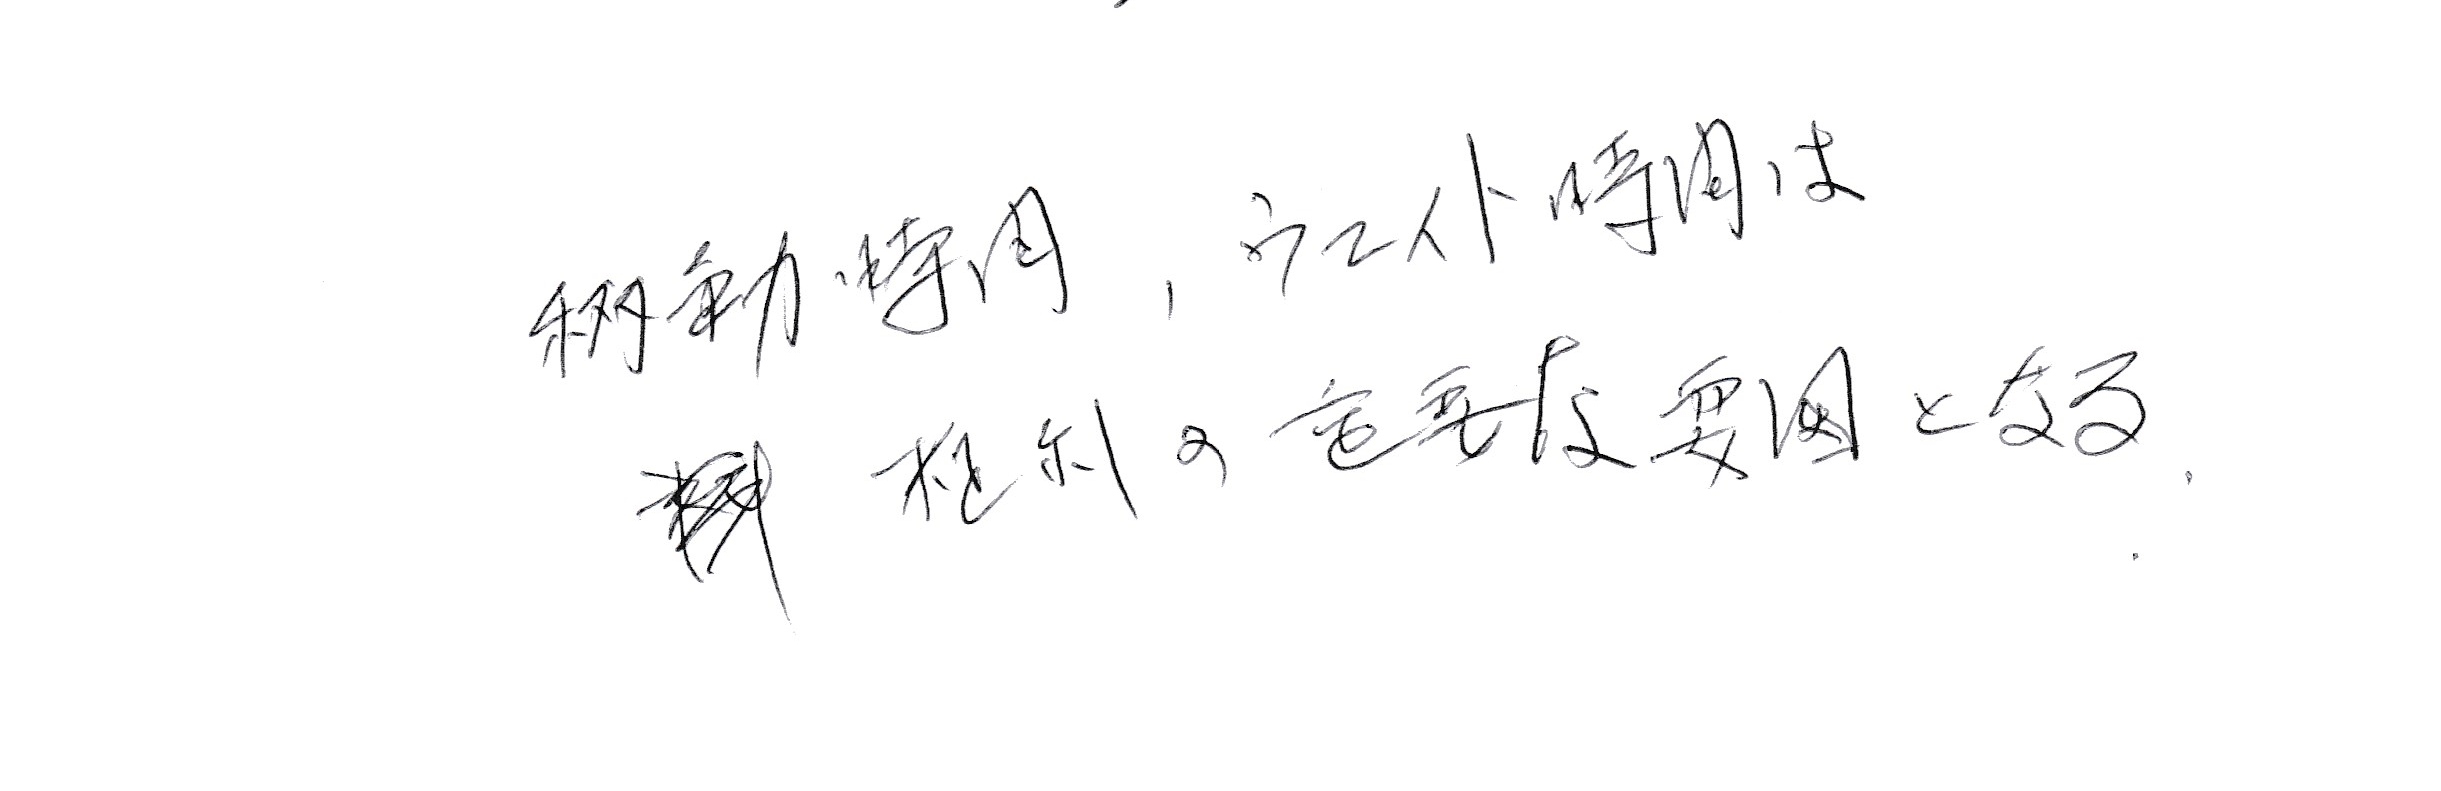 稼動時間，ウエイト時間は
権利の重要な要因となる．